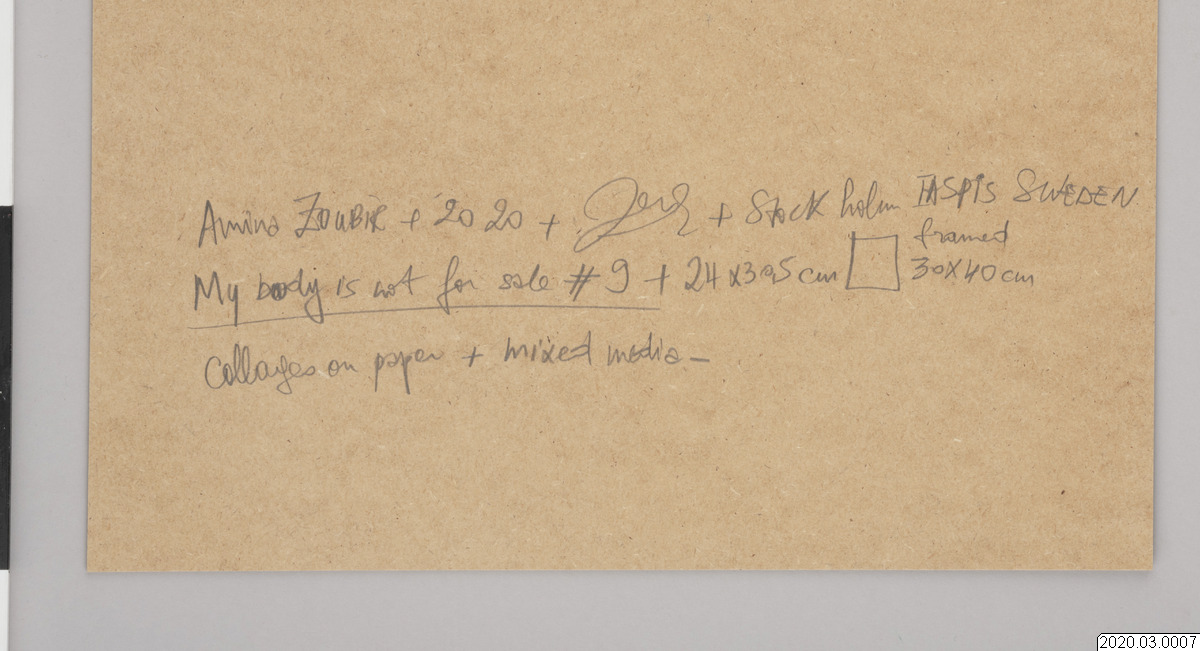 Amina ZOUBIR + 2020 + + Stockholm IASPIS SWEDEN
My body is not for sale # 9 + 24 x 30,5 cm framed
30x40 cm
Collages on paper + mixed media -
2020.03.0007